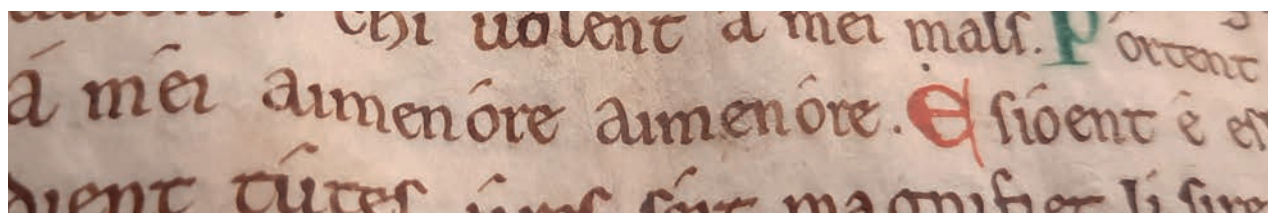 chi uolent a mei malſ. Portent
á méi aimenóre aimenóre. Eſióent é eſ
dient tűteſ úreſ ſéit magnifiet li ſire